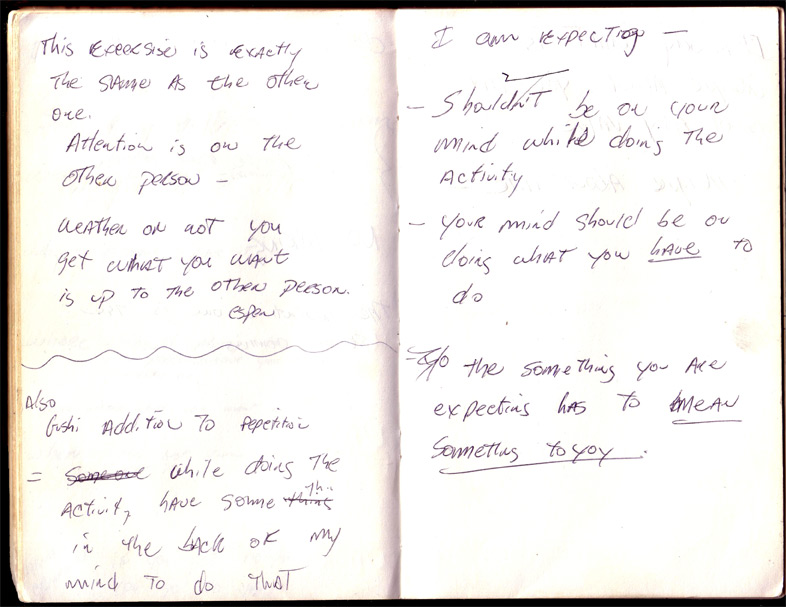 This Exercise is Exactly
The Same As the Other
one.
Attention is on the
Other person —
Weather or not you
get what you want
is up to the other person.
Also
Addition To Repetition
= while doing The
Activity, have some
in the back of my
mind To do That
I am expecting —
— Shouldn't be on your
mind while doing The
Activity
— your mind should be on
doing what you have to
do
the something you Are
expecting has to MEAN
Something to you.